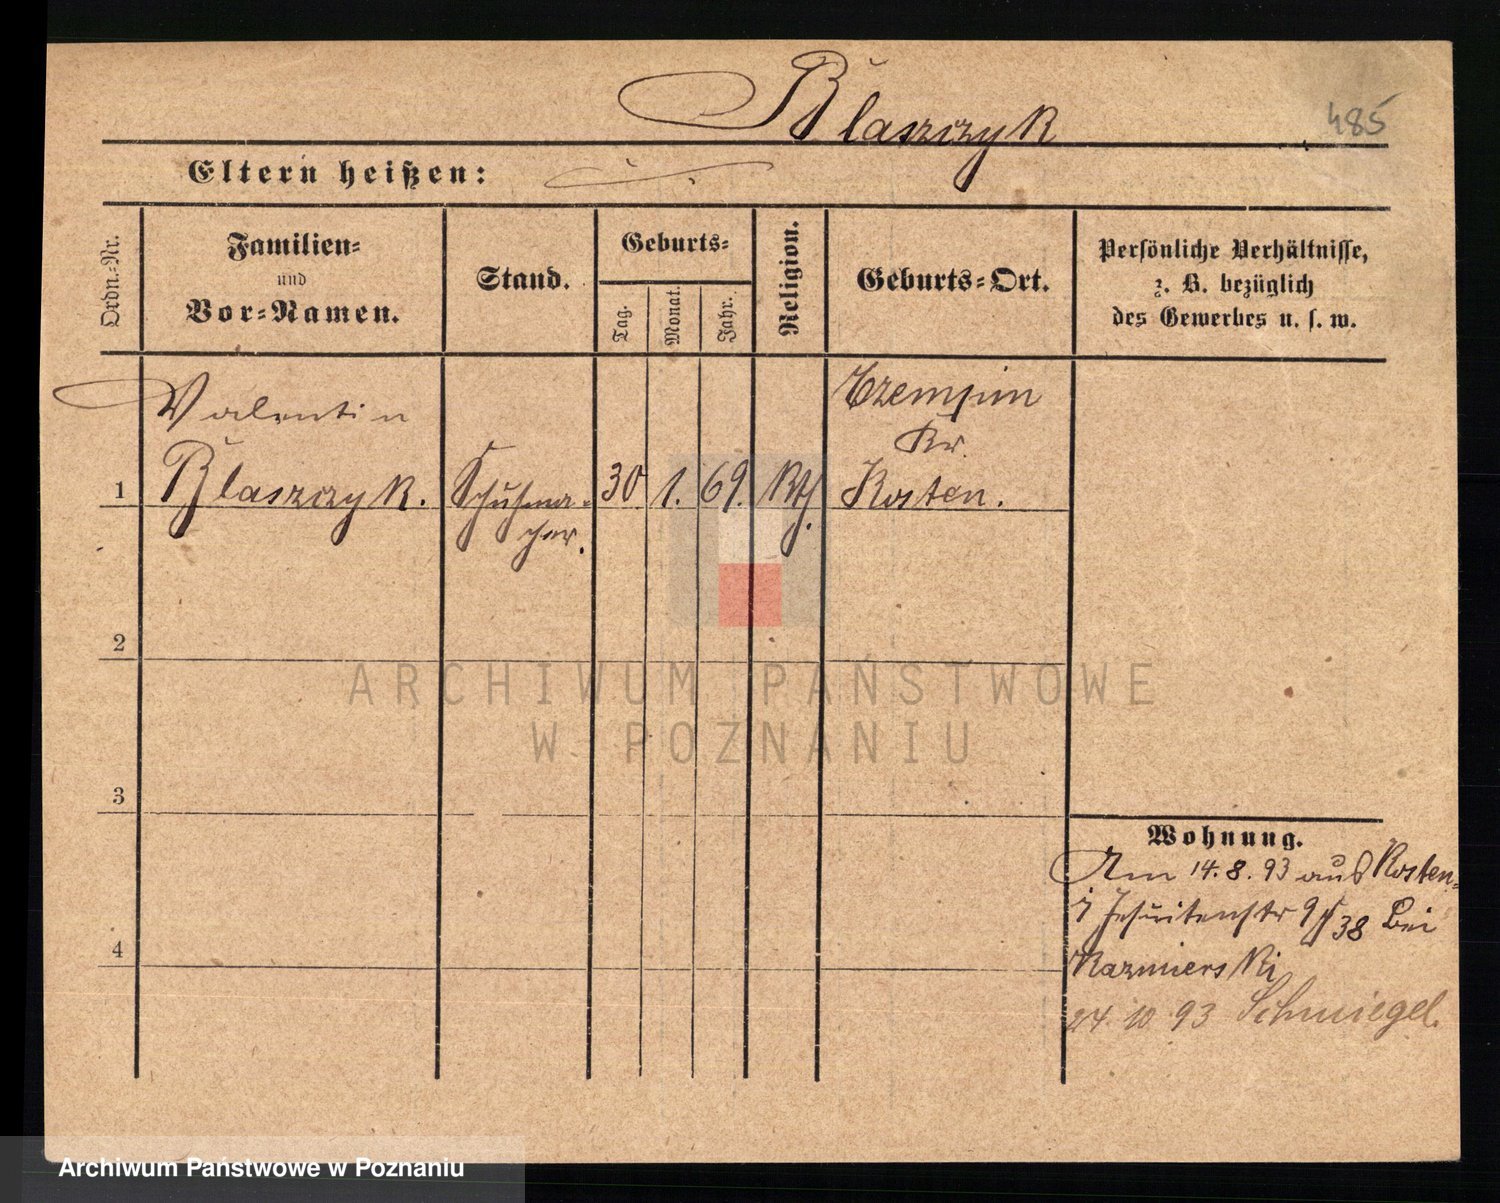 Blaszczyk
485
Eltern heißen:
Ordn.=Nr.
Familien=
und
Vor=Namen.
Stand.
Geburts=
Tag.
Monat.
Jahr.
Religion.
Geburts=Ort.
Persönliche Verhältnisse,
z. B. bezüglich
des Gewerbes u. s. w.
Valentin
Blaszczyk.
1
Schuhma=
cher.
30
1.
69.
Kth.
Czempin
Kr.
Kosten.
2
3
4
Wohnung.
Am 14.8.93 aus Kosten
Jesuitenstr 9 38 bei
Kazmierski
24.10.93 Schmiegel.
ARCHIWUM PAŃSTWOWE
W POZNANIU
Archiwum Państwowe w Poznaniu